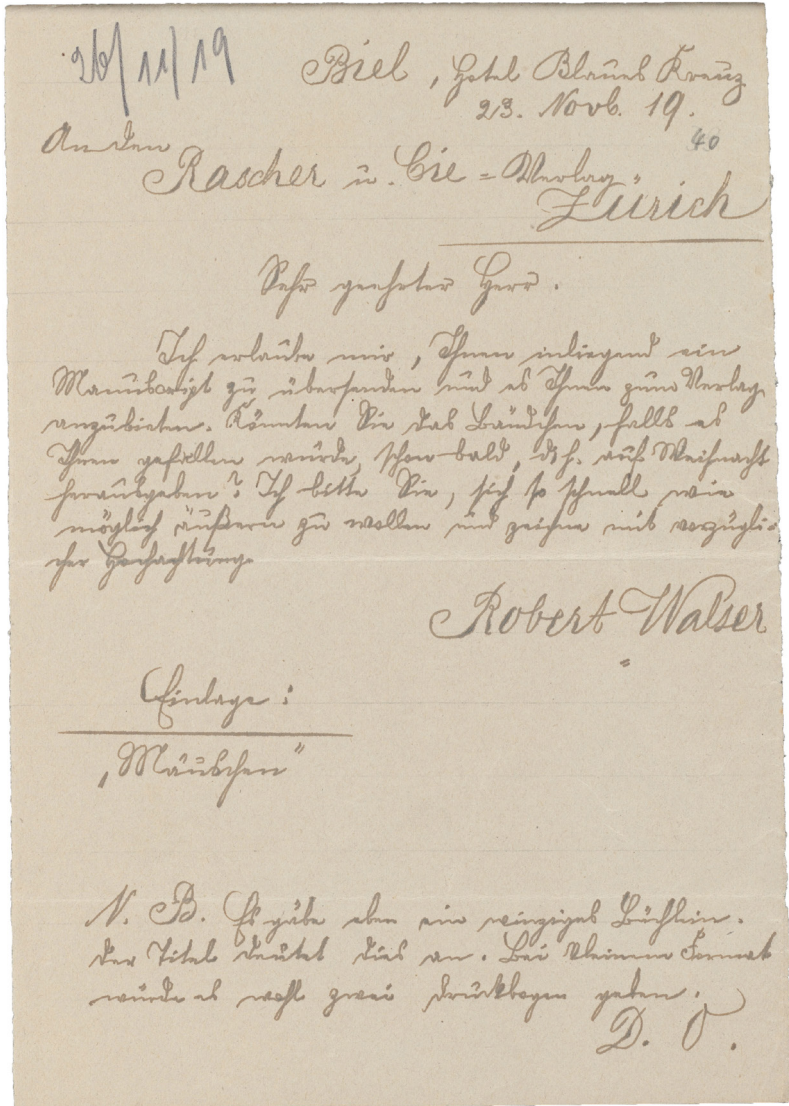 26/11/19
Biel, Hotel Blaues Kreuz
23. Novb. 19.
40
An den
Rascher u. Cie = Verlag,
Zürich
Sehr geehrter Herr.
Ich erlaube mir, Ihnen inliegend ein
Manuscript zu übersenden und es Ihnen zum Verlag
anzubieten. Könnten Sie das Bändchen, falls es
Ihnen gefallen würde, schon bald, d. h. auf Weihnacht
herausgeben? Ich bitte Sie, sich so schnell wie
möglich äußern zu wollen und zeichne mit vorzügli-
cher Hochachtung.
Robert Walser
Einlage:
„Mäuschen"
N. B. Es gäbe eben ein winziges Büchlein.
Der Titel deutet dies an. Bei kleinem Format
würde es wohl zwei Druckbogen geben.
D. O.